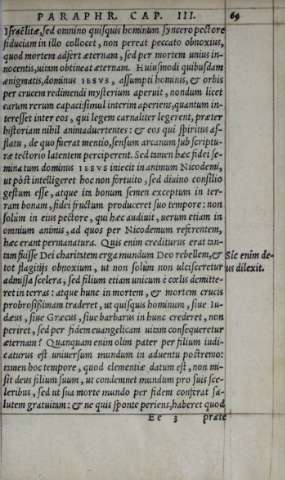 PARAPHR. CAP. III. 69
Israëlitæ, sed omnino quisquis hominum syncero pectore
fiduciam in illo collocet, non pereat peccato obnoxius,
quod mortem adfert æternam, sed per mortem unius in-
nocentis, uitam obtineat æternam. Huiusmodi quibusdam
ænigmatis, dominus IESVS, assumpti hominis, & orbis
per crucem redimendi mysterium aperuit, nondum licet
earum rerum capacissimul interim aperiens, quantum in-
teresset inter eos, qui legem carnaliter legerent, præter
historiam nihil animaduertentes: & eos qui spiritus af-
flatu, de quo fuerat mentio, sensum arcanum sub scriptu-
ræ tectorio latentem perciperent. Sed tamen hæc fidei se-
mina tum dominus IESVS iniecit in animum Nicodemi,
ut post intelligeret hoc non fortuito, sed diuino consilio
gestum esse, atque ita bonum semen exceptum in ter-
ram bonam, fidei fructum produceret suo tempore: non
solùm in eius pectore, qui hæc audiuit, uerum etiam in
omnium animis, ad quos per Nicodemum referentem,
hæc erant permanatura. Quis enim crediturus erat tan-
tam fuisse Dei charitatem erga mundum Deo rebellem, &
Sic enim de-
tot flagitijs obnoxium, ut non solùm non ulcisceretur
us dilexit.
admissa scelera, sed filium etiam unicum è cœlis demitte-
ret in terras: atque hunc in mortem, & mortem crucis
probrosissimam traderet, ut quisquis hominum, siue Iu-
dæus, siue Græcus, siue barbarus in hunc crederet, non
periret, sed per fidem euangelicam uitam consequeretur
æternam? Quanquam enim olim pater per filium iudi-
caturus est uniuersum mundum in aduentu postremo:
tamen hoc tempore, quod clementiæ datum est, non mi-
sit deus filium suum, ut condemnet mundum pro suis sce-
leribus, sed ut sua morte mundo per fidem conferat sa-
lutem gratuitam: & ne quis sponte periens, haberet quod
Ee 3 præte